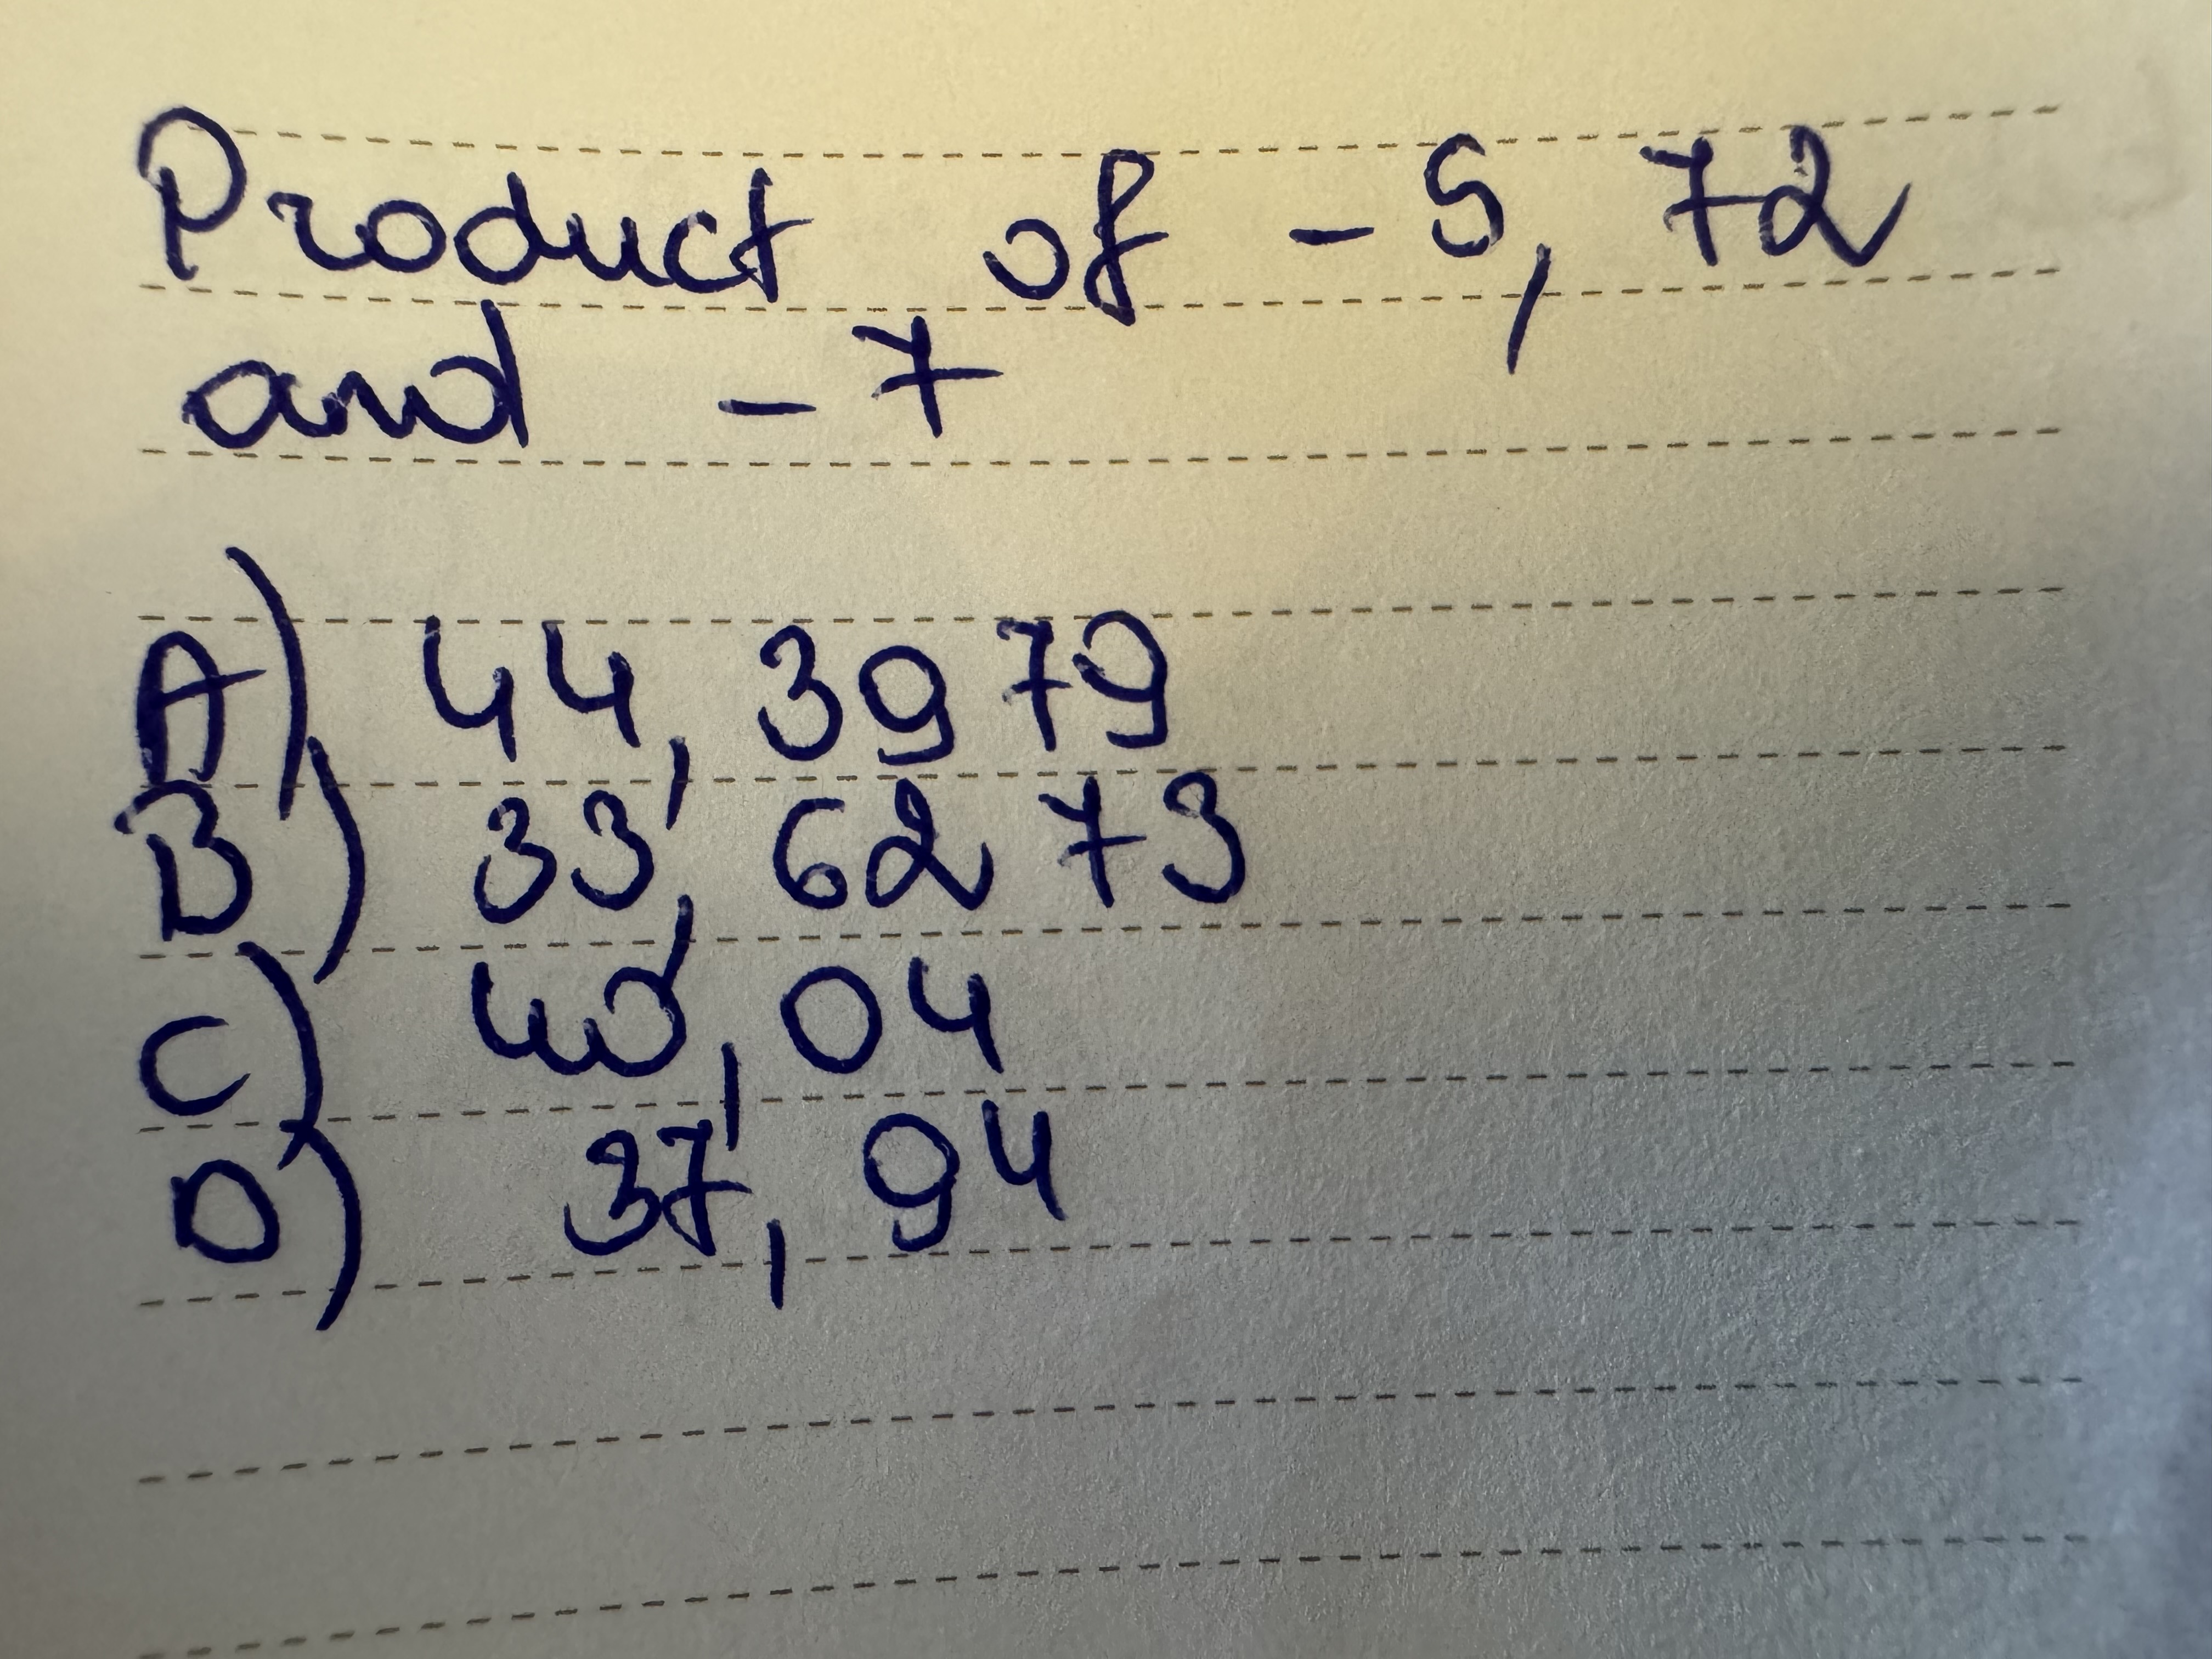 Product of -5,72
and -7
A) 44,3979
B) 33,6273
C) 40,04
D) 37,94